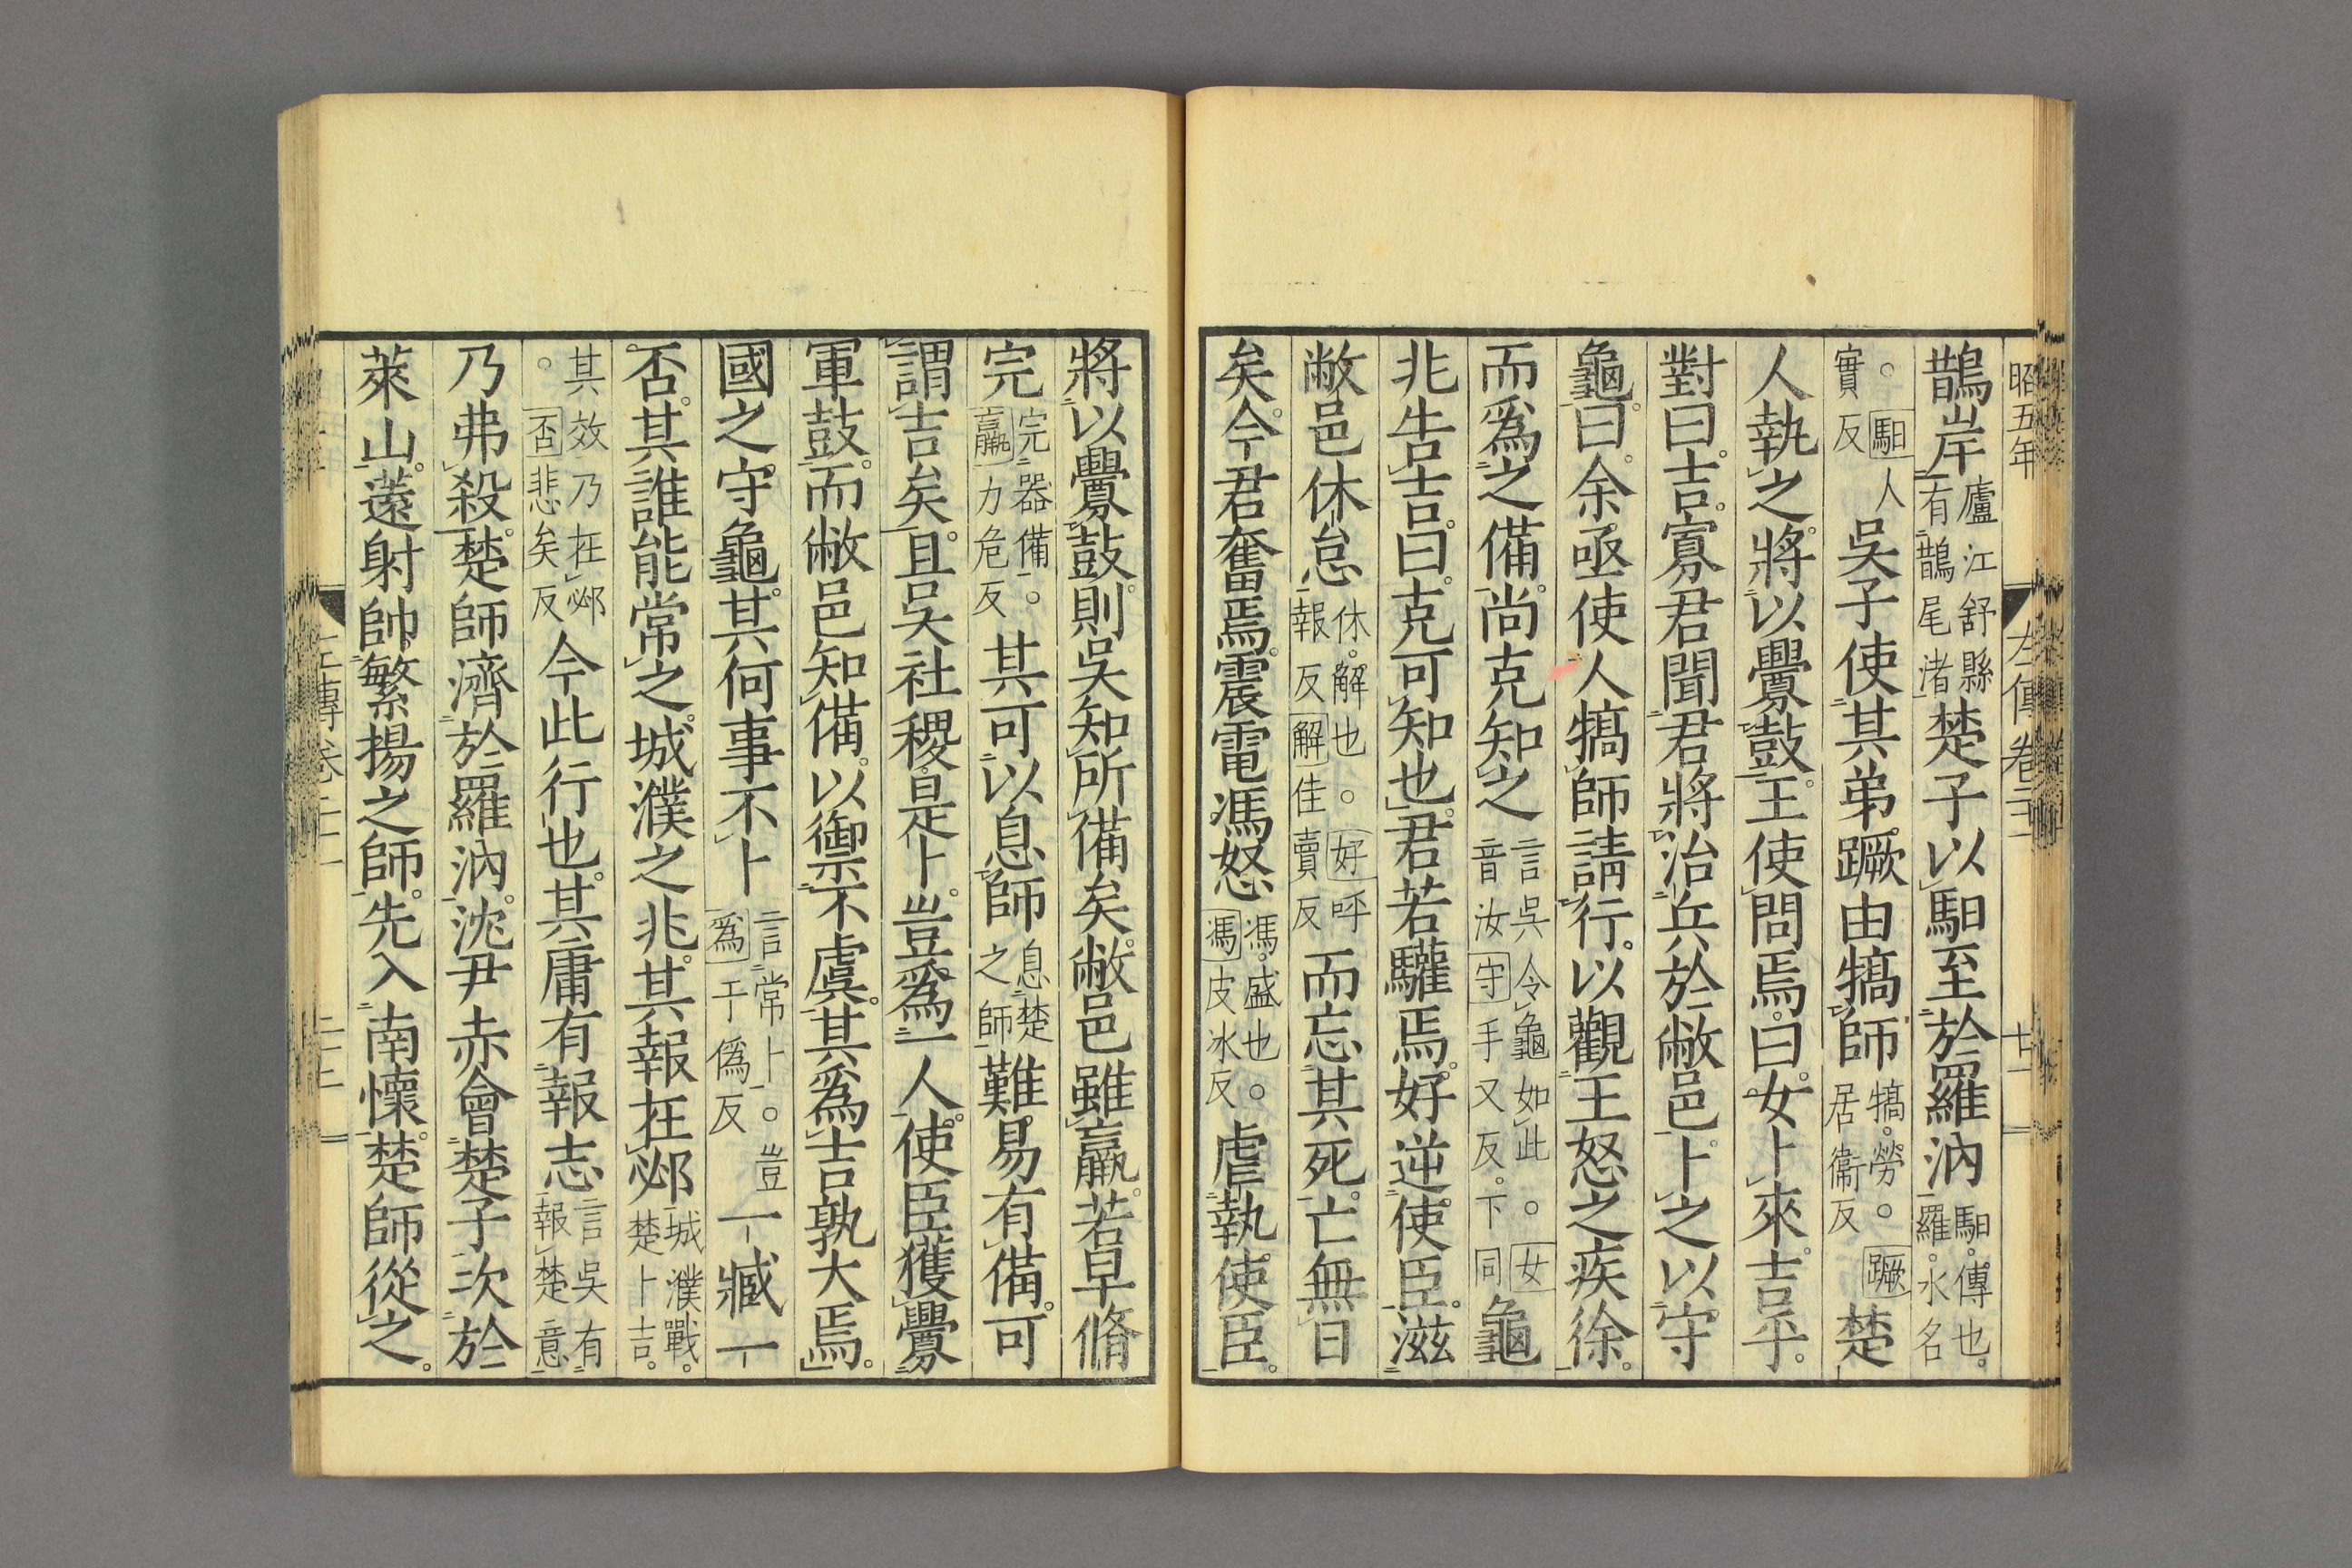 昭五年
左傳卷二十一
廿一
鵲岸廬江舒縣有鵲尾渚楚子以馹至於羅汭馹。傳也。羅。水名
。馹人實反吳子使其弟蹶由犒師犒。勞。蹶居衞反楚
人執之。將以釁鼓。王使問焉。曰。女卜來吉乎。
對曰。吉。寡君聞君將治兵於敝邑。卜之以守
龜。曰。余亟使人犒師請行。以觀王怒之疾徐。
而爲之備。尚克知之言吳令龜如此。女音汝守手又反。下同龜
兆告吉。曰。克可知也。君若驩焉。好逆使臣。滋
敝邑休怠休。解也。好呼報反解佳賣反而忘其死。亡無日
矣。今君奮焉。震電馮怒馮。盛也。馮皮冰反虐執使臣。
將以釁鼓。則吳知所備矣。敝邑雖羸。若早脩
完完器備。羸力危反其可以息師息楚之師難易有備。可
謂吉矣。且吳社稷是卜。豈爲一人。使臣獲釁
軍鼓。而敝邑知備。以禦不虞。其爲吉孰大焉。
國之守龜。其何事不卜言常卜。豈爲于僞反一臧一
否。其誰能常之。城濮之兆。其報在邲城濮戰。楚卜吉。
其效乃在邲。否悲矣反今此行也。其庸有報志言吳有報楚意
乃弗殺。楚師濟於羅汭。沈尹赤會楚子次於
萊山。薳射帥繁揚之師。先入南懷。楚師從之。